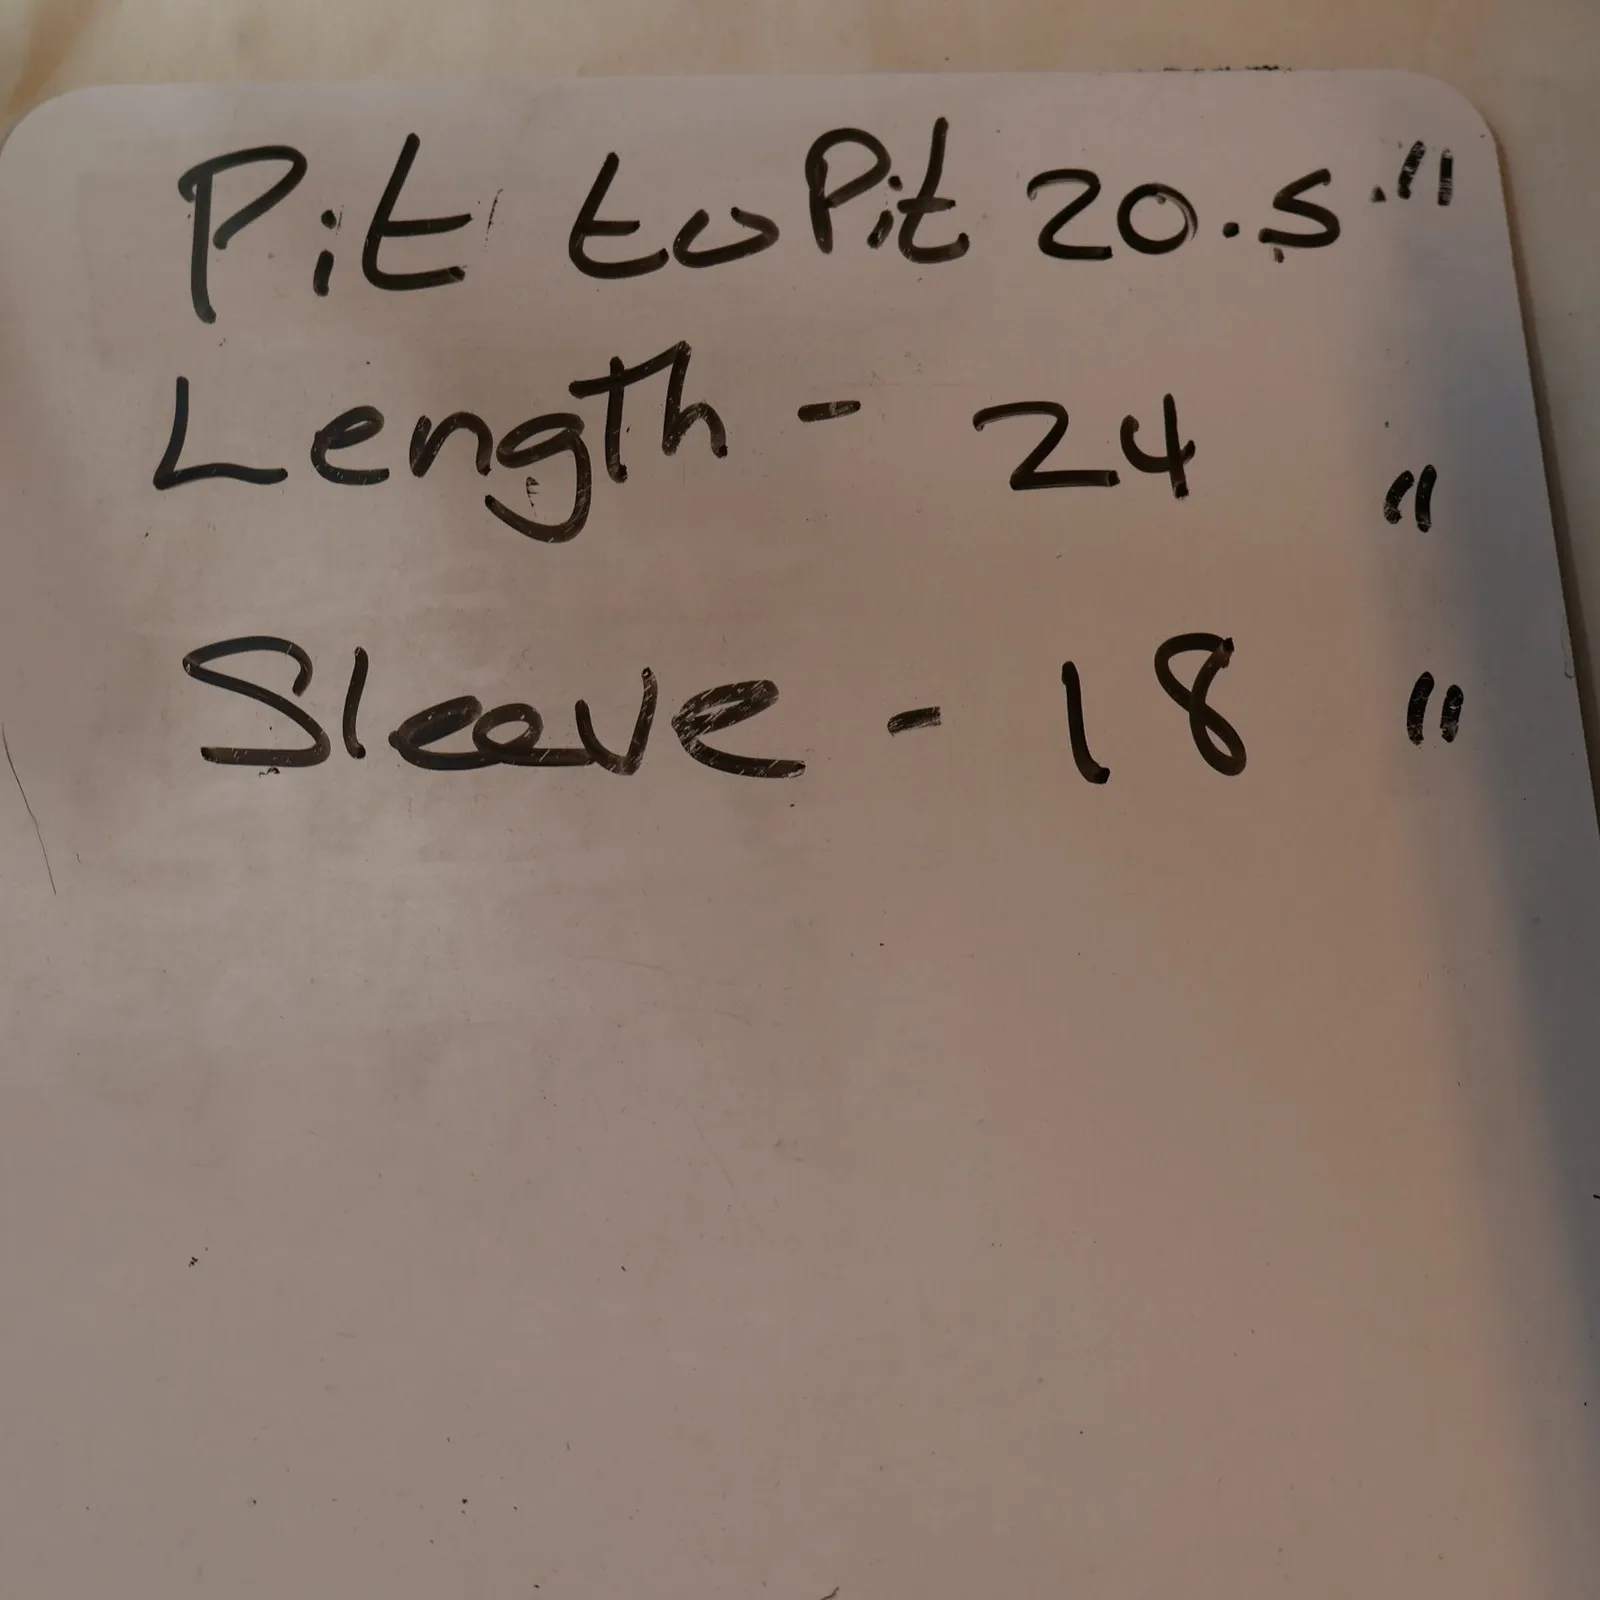 Pit to Pit 20.5"
Length - 24 "
Sleeve - 18 "